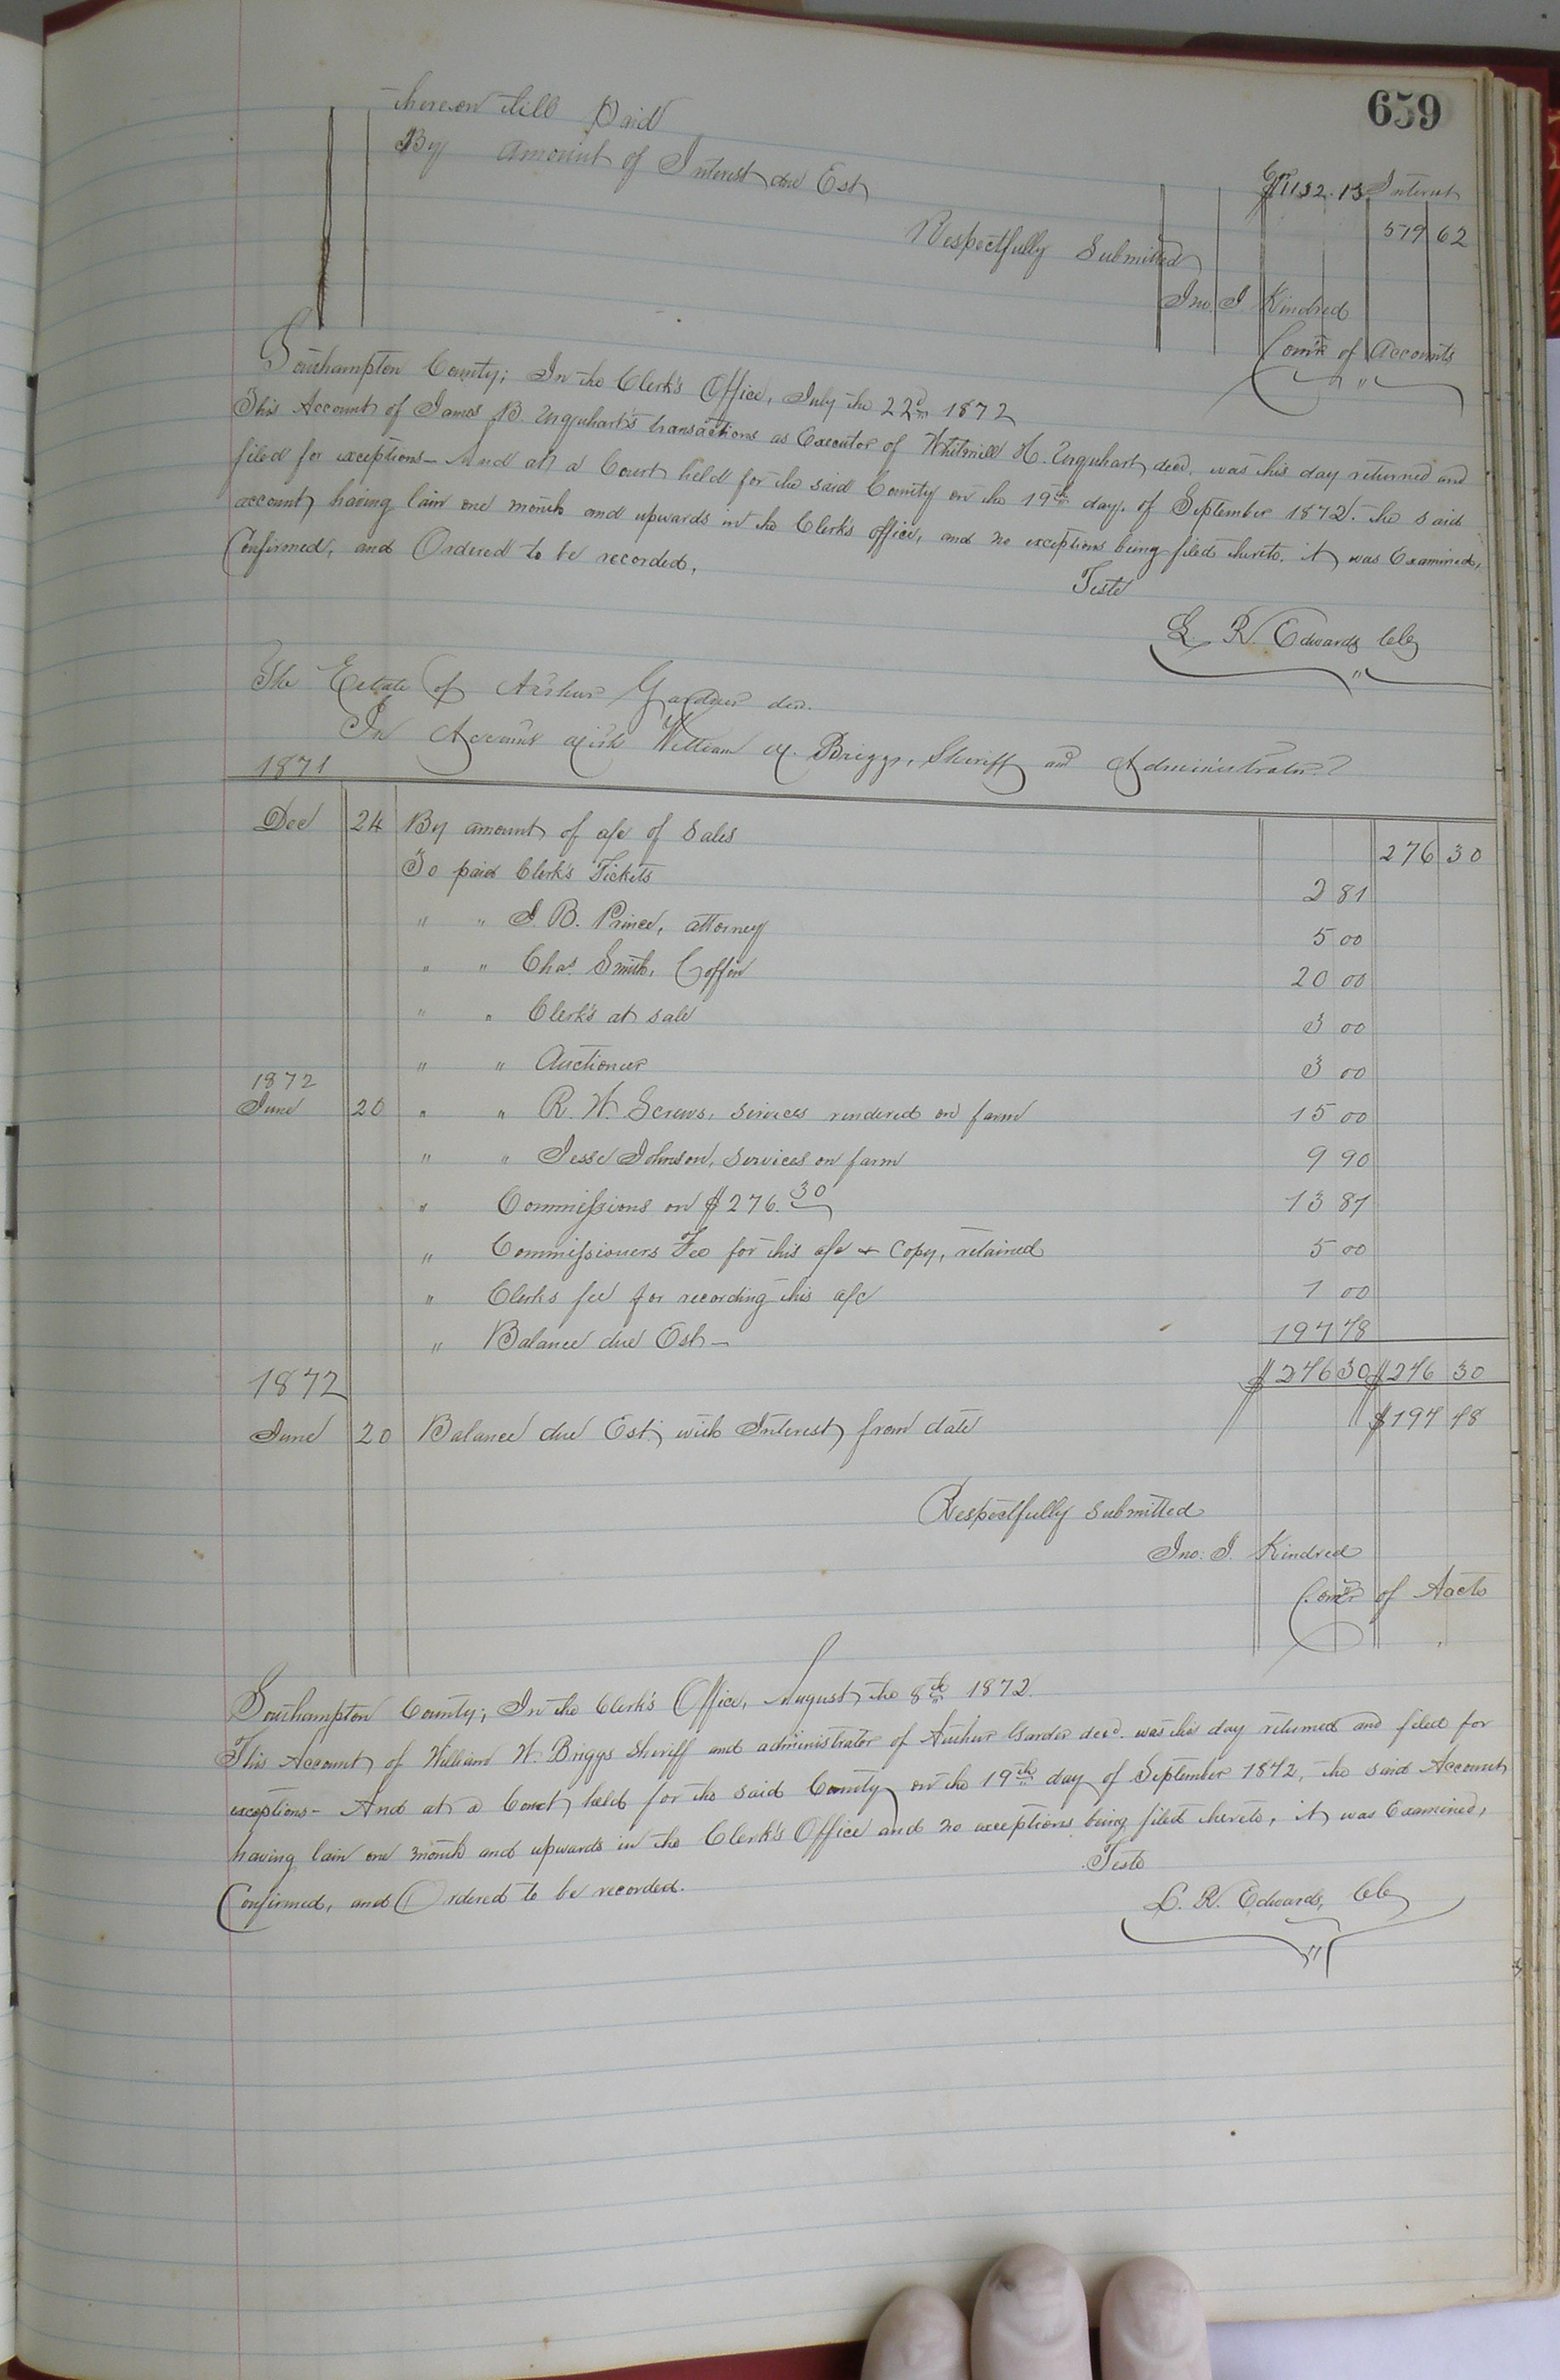 659
thereon till Paid $1132.13 Interest
By Amount of Interest due Est 579 62
Respectfully Submitted
Jno. J. Kindred
Com'r of Accounts
Southampton County; In the Clerk's Office, July the 22d 1872
This Account of James B. Urquhart's transactions as Executor of Whitmill H. Urquhart, decd. was this day returned and
filed for exceptions - And at a Court held for the said County on the 19th day of September 1872. the said
account, having lain one month and upwards in the Clerk's office, and no exceptions being filed thereto. it was Examined,
Confirmed, and Ordered to be recorded.
Teste
L. R. Edwards Clk
The Estate of Arthur Gardner dec.
In Account with William W. Briggs, Sheriff and Administrator
1871
Dec 24 By amount of a/c of Sales 276 30
To paid Clerk's Tickets 2 81
" " J. B. Prince, attorney 5 00
" " Chas. Smith, Coffin 20 00
" " Clerk's at sale 3 00
" " Auctioneer 3 00
1872
June 20 " " R. W. Screws, services rendered on farm 15 00
" " Jesse Johnson, Services on farm 9 90
" Commissions on $276.30 13 81
" Commissioners Fee for this a/c & Copy, retained 5 00
" Clerks fee for recording this a/c 1 00
" Balance due Est - 197 78
1872 $276 30 $276 30
June 20 Balance due Est, with Interest from date $197 78
Respectfully submitted
Jno. J. Kindred
Com'r of Accts
Southampton County; In the Clerk's Office, August the 8th 1872.
This Account of William W. Briggs Sheriff and administrator of Arthur Gardner decd. was this day returned and filed for
exceptions - And at a Court held for the said County on the 19th day of September 1872, the said Account
having lain one month and upwards in the Clerk's Office and no exceptions being filed thereto, it was Examined,
Confirmed, and Ordered to be recorded.
Teste
L. R. Edwards, Clk